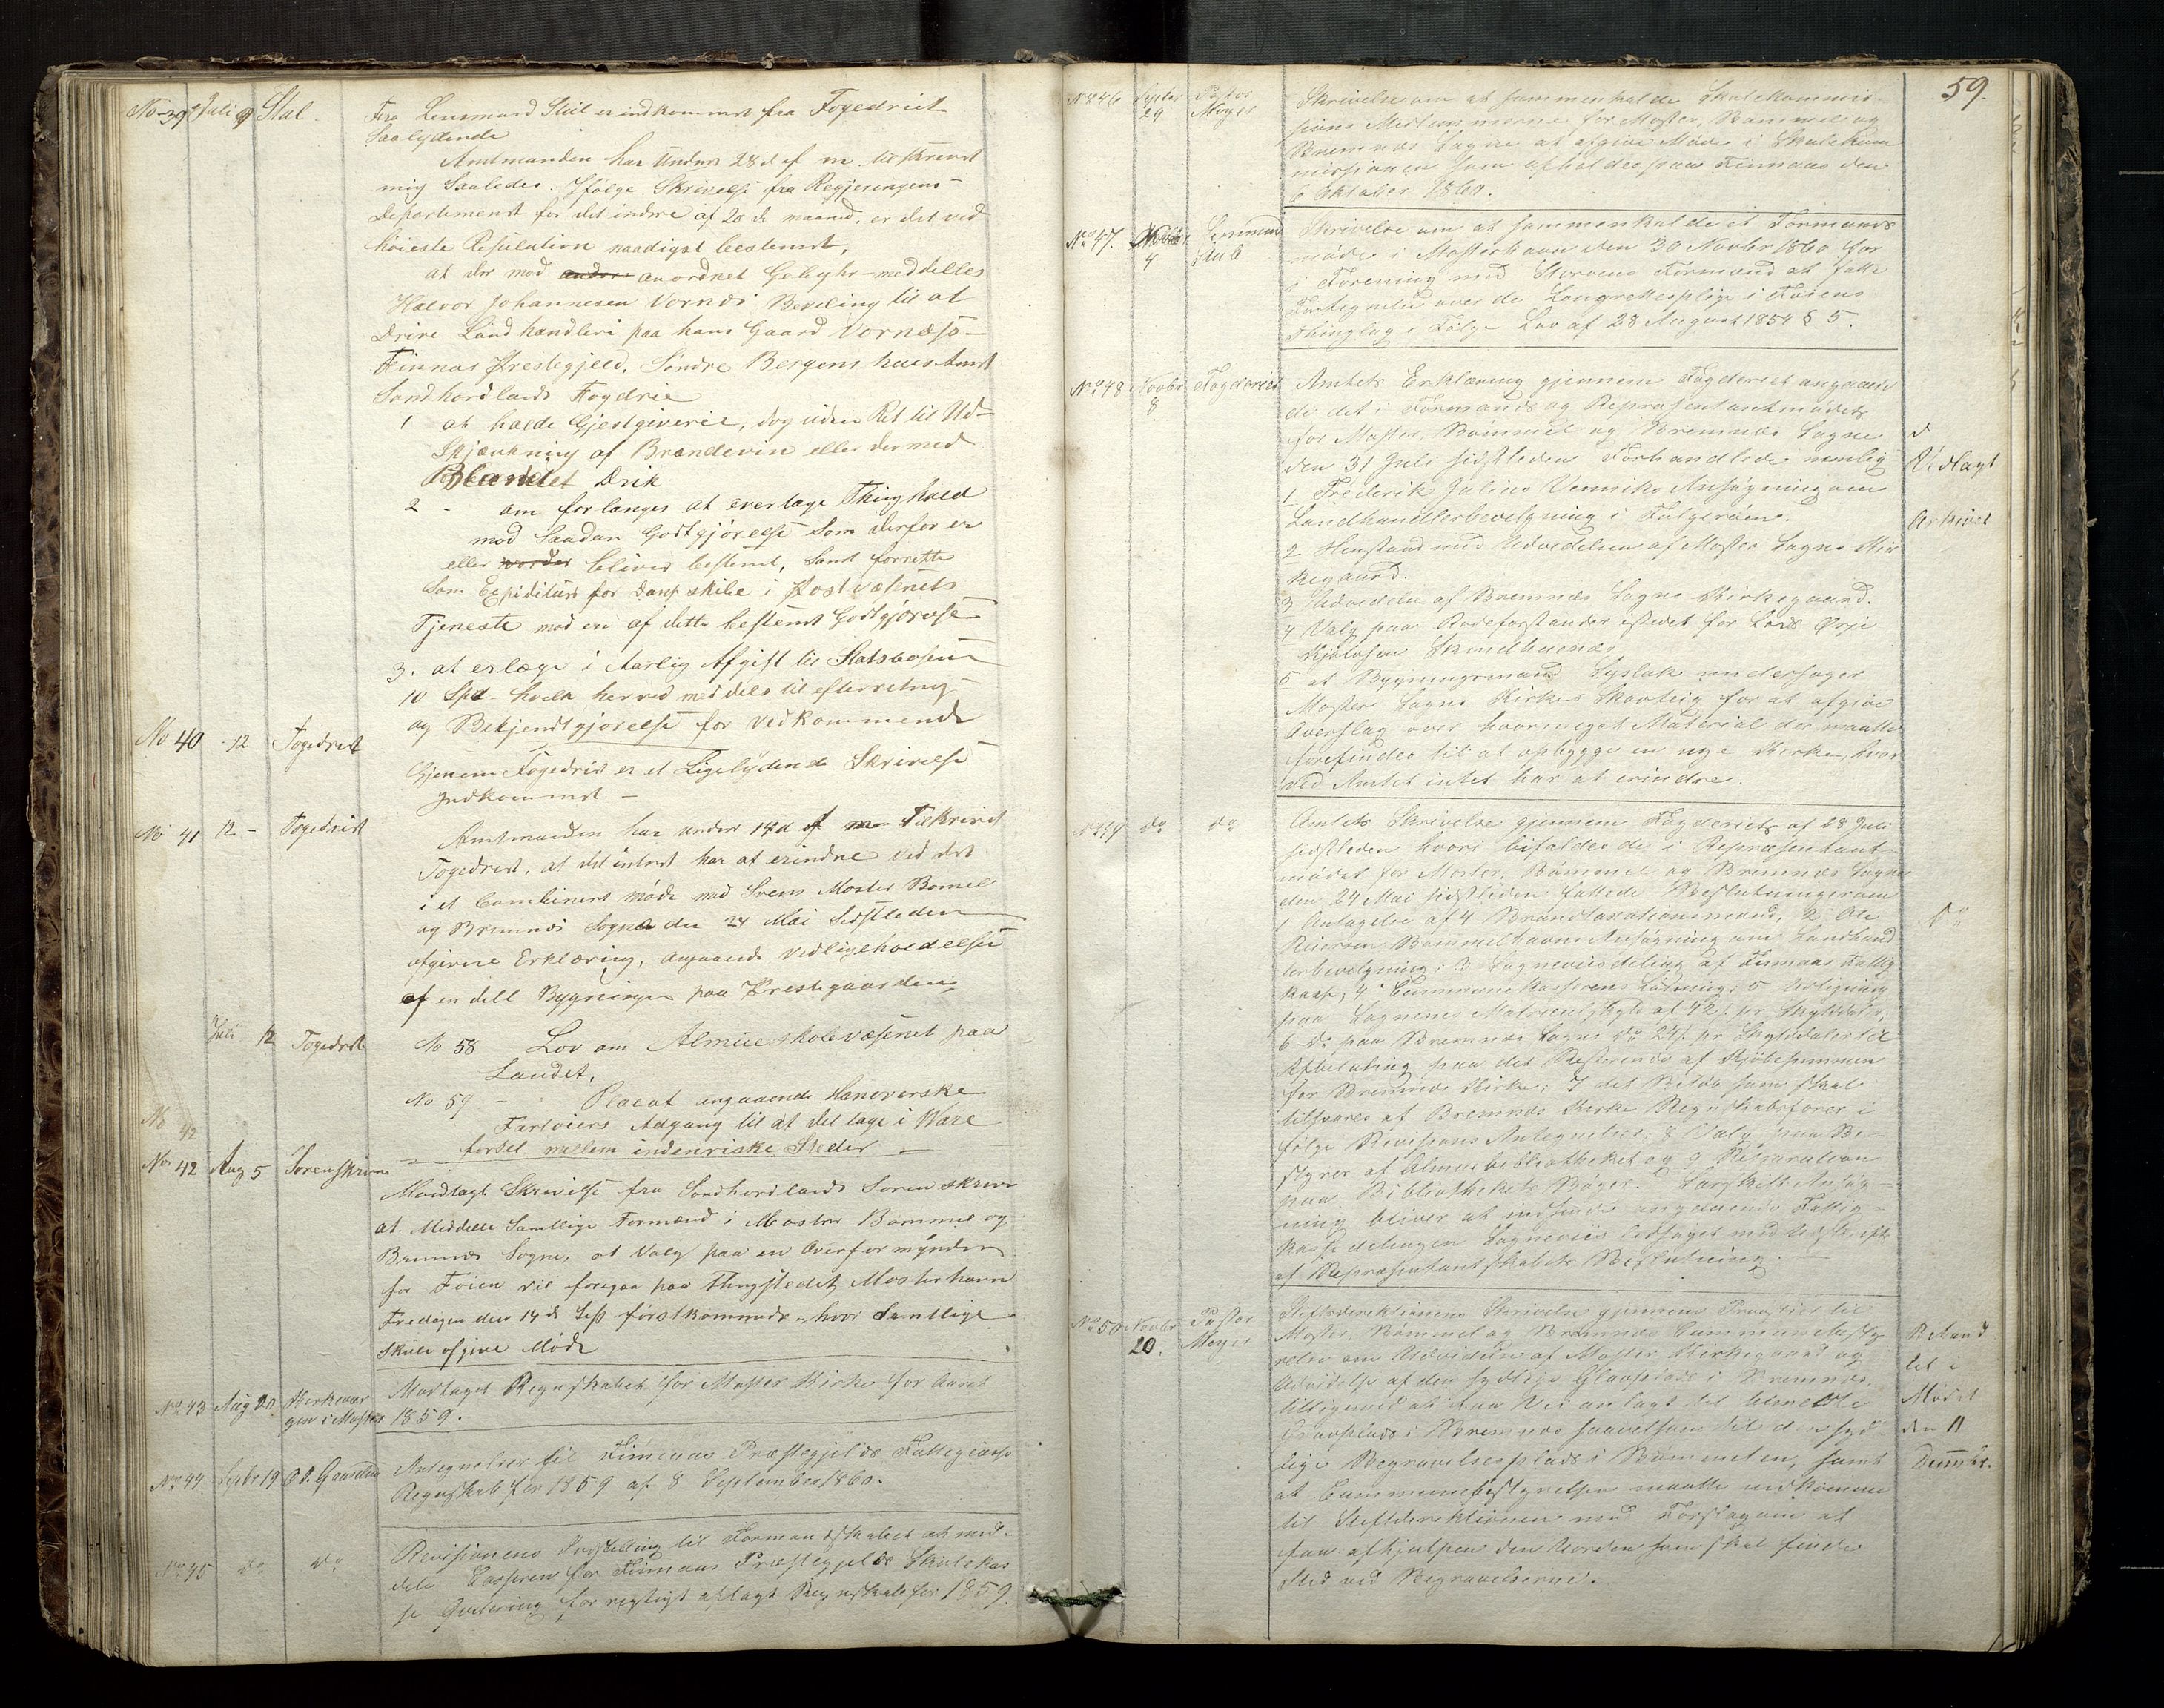 No 39 Juli 9 Stub.
Fra Lensmand Stub er indkommet fra Fogedriet
Saalydende
Amtmanden har Under 28 d af m. tilskrevet
mig Saaledes. Ifølge Skrivelse fra Regjeringens
Departement for det indre af 20 ds maaned, er det ved
høieste Resulation naadigst bestemt,
at der mod anordnet Gebyhr meddelles
Halvor Johannesen Vornæs Beviling til at
Drive Landhandleri paa hans Gaard Vornæs
Finnas Prestegjeld, Søndre Bergens huus Amt
Søndhordlands Fogdrie
1 at holde Gjestgiverie, dog uden Ret til Ud-
Skjænkning af Brændevin eller dermed
Blandet Drik
2 - om forlanges at overtage Thinghold
mod Saadan Godtgjørelse Som derfor er
eller bliver bestemt, Samt forrette
Som Expiditeur for Dampskibe i Postvæsenets
Tjeneste mod en af dette bestemt Godtgjørelse
3. at erlæge i Aarlig Afgift til Statskassen
10 Spd - hvilk herved meddels til efterretning
og Bekjendtgjørelse for Vedkommende
No 40 - 12 Fogedriet
Gjenem Fogedriet er et Ligelydende Skrivelse
Indkommet -
No 41 12 - Fogedriet
Amtmanden har under 14 d af m Tilskrivet
Fogedriet, at det intet har at erindre ved det
i et Combineret møde med Svens Moster Bømel
og Bremnæs Sogne den 24 Mai Sidstleden
afgivne Erklæring, angaaende Vedligeholdelsen
af en dell Bygninger paa Prestegaarden
Juli 12 Fogedriet
No 58 Lov om Almueskolevæsenet paa
Landet,
No 59 - Placat angaaende Hanoverske
Fartøiers Adgang til at deltage i Vare
førsel mellem indenriske Steder -
No 42
No 42 Aug 5 Sorenskriver
Modtagt Skrivelse fra Søndhordlands Sorenskriver
at Meddele Samtlige Formænd i Moster Bømmel og
Bremnæs Sogne, at Valg paa en Overformynder
for Føien vil foregaa paa Thingstedet Mosterhavn
Fredagen den 14 ds Sep førstkommende, hvor Samtlige
skulle afgive Møde
No 43 Aug 20 Kirkevær
gen i Moster
Modtaget Regnskabet for Moster Kirke for Aaret
1859.
No 44. Septbr 19
Antegnelser til Finnaas Præstegjelds Fattigcasse
Regnskab for 1859 af 8 September 1860.
No 45 do do
Revisionens Indstilling til Formandskabet at med-
dele Cassereren for Finnaas Præstegjelds Skolekas
se Qvitering for rigtigt aflagt Regnskab for 1859.
59.
No 46 Septbr
29 Pastor
Meyer
Skrivelse om at sammenkalde Skolekommis
sions Medlemmerne for Moster, Bømmel og
Bremnæs Sogne at afgive Møde i Skolekom
missionen som afholdes paa Finnaas den
6 Oktober 1860.
No 47. Novbr
4 Lensmand
Stub
Skrivelse om at sammenkalde et Formands
møde i Mosterhavn den 30 Novbr 1860 for
i Forening med Storøens Formænd at fatte
Fortegnelse over de Laugrettespligtige i Føiens
Thinglag i Følge Lov af 28 August 1854 § 5.
No 48 Novbr
8 Fogderiet
Amtets Erklæring gjennem Fogderiet angaaen
de det i Formands og Repræsentantmødet
for Moster, Bømmel og Bremnæs Sogne
den 31 Juli sidstleden Forhandlede nemlig
1 Frederik Julius Ansøgning om
Landhandlerbevilgning i Folgerøen.
2 Henstand med Udvidelsen af Moster Sogns Kir
kegaard.
3 Udvidelse af Bremnæs Sogns Kirkegaard.
4 Valg paa Rodeforstander istedet for Lars
5 at Bygningsmand undersøger
Moster Sogns Kirkes Skovteig for at afgive
Overslag over hvormeget Material der maatte
forefindes til at opbygge en nye Kirke, hvor
ved Amtet intet har at erindre.
Vedlagt
Arkivet
No 49 do do
Amtets Skrivelse gjennem Fogderiet af 28 Juli
sidstleden hvori bifaldes de i Repræsentant-
mødet for Moster, Bømmel og Bremnæs Sogne
den 24 Mai sidstleden fattede Beslutninger om
1 Antagelse af 4 Brandtaxationsmænd, 2 Ole
Bømmelhavns Ansøgning om Landhand
lerbevilgning; 3 Sogneviis deling af Finnaas Fattig
kasse; 4 Communekassererens Lønning; 5 Udligning
paa Sognenes Matrikulskyld af 42 s. pr. Skylddaler,
6 do paa Bremnæs Sogns do 24 s. pr. Skylddaler til
Afbetaling paa det Resterende af Kjøbesummen
for Bremnæs Kirke; 7 det Beløb som skal
tilsvares af Bremnæs Kirke Regnskabsfører i
følge Revisions Antegnelser; 8 Valg paa Be-
styrer af Almuebibliotheket og 9 Reparation
paa Bibliothekets Bøger. Særskilt Ansøg-
ning bliver at indsende angaaende Fattig-
kasse delingen Sogneviis ledsaget med Udskrift
af Repræsentantskabets Beslutning.
do
No 50 Novbr
20. Pastor
Meyer
Stiftsdirektionens Skrivelse gjennem Provstiet til
Moster, Bømmel og Bremnæs Communebesty
relse om Udvidelse af Moster Kirkegaard og
Udvidelse af den sydlige Gravplads i Bremnæs,
tilligemed at faa Vei anlagt til
Gravplads i Bremnæs saavelsom til den syd-
lige Begravelsesplads i Bømmelen, samt
at Communebestyrelsen maatte indkomme
til Stiftsdirektionen med Forslag om at
faa afhjulpen den Uorden som skal finde
Sted ved Begravelserne.
Behand
let i
Mødet
den 11
Decembr.